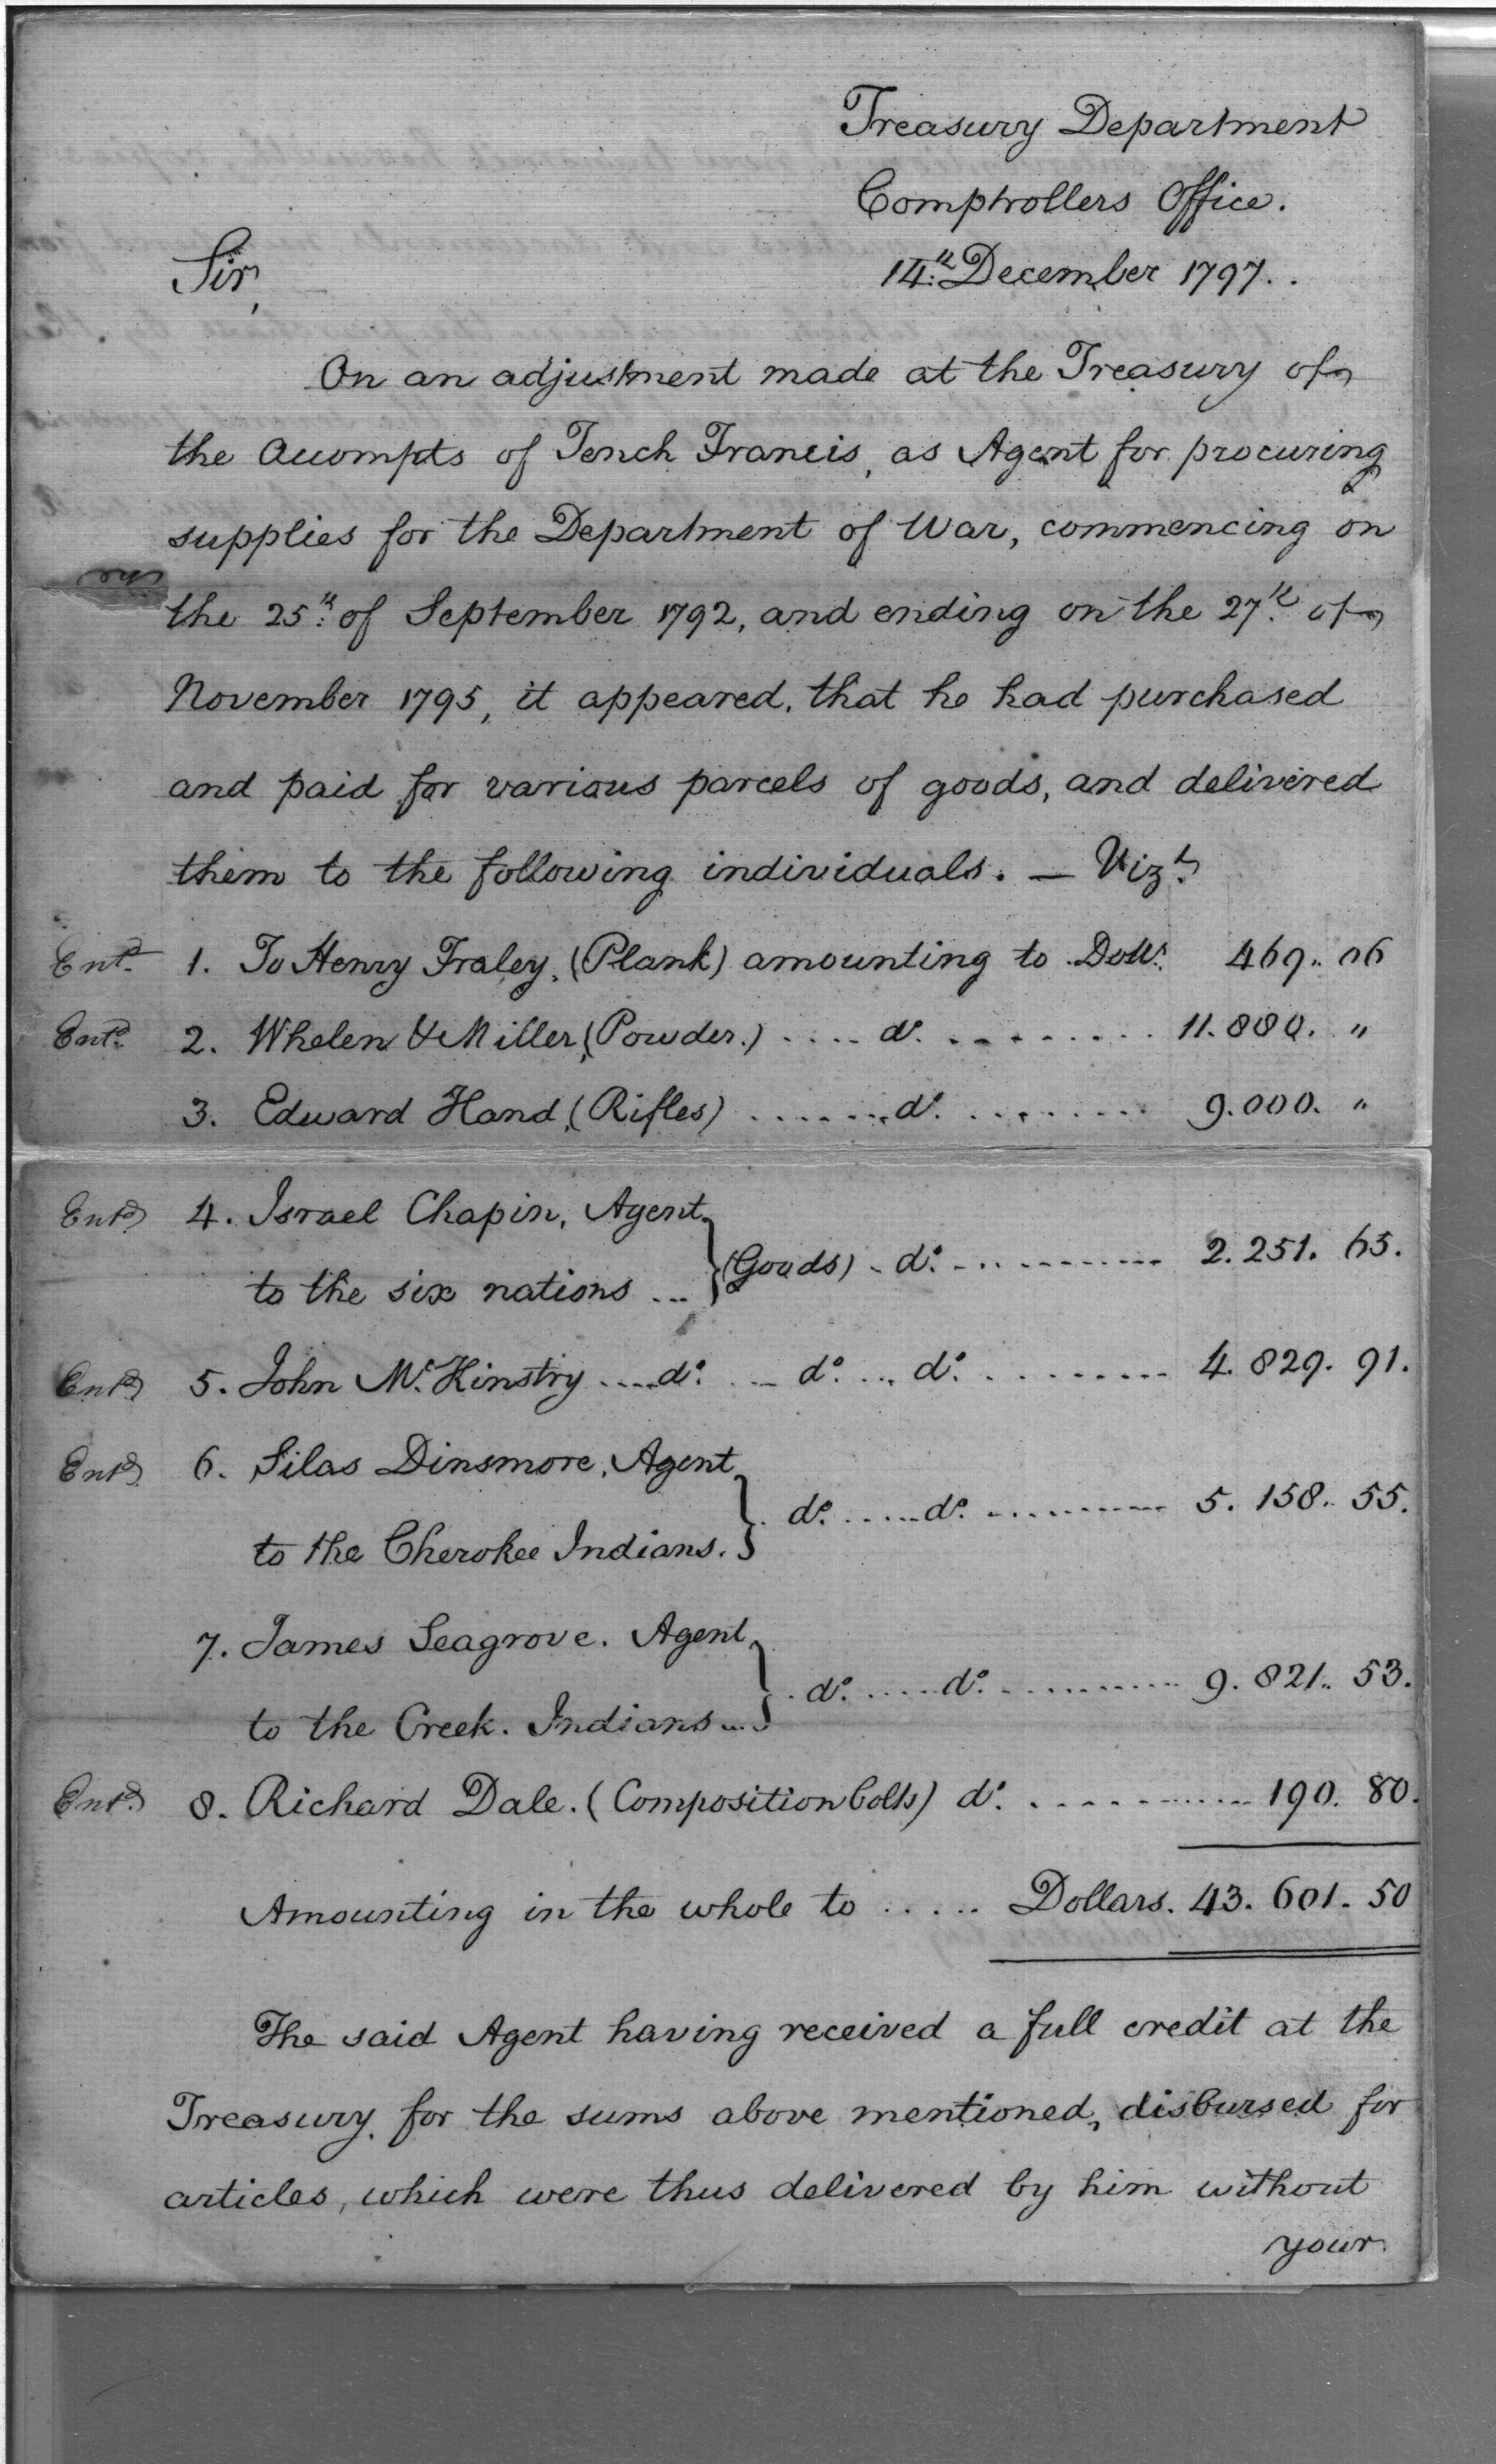 Treasury Department
Comptrollers Office.
14.th December 1797..
Sir,
On an adjustment made at the Treasury of
the Accompts of Tench Francis, as Agent for procuring
supplies for the Department of War, commencing on
the 25.th of September 1792, and ending on the 27.th of
November 1795, it appeared, that he had purchased
and paid for various parcels of goods, and delivered
them to the following individuals. — Vizt.
Entd. 1. To Henry Fraley, (Plank) amounting to Dolls. 469.. 06
Entd. 2. Whelen & Miller, (Powder.) .... do. ......... 11.880. "
3. Edward Hand, (Rifles) ....... do. ........ 9.000. "
Entd. 4. Israel Chapin, Agent
to the six nations ... } (Goods) . do. ........... 2.251. 65.
Entd. 5. John McKinstry .... do. ... do. ... do. ......... 4.829. 91.
Entd. 6. Silas Dinsmore, Agent
to the Cherokee Indians. } do. ..... do. .......... 5.158.. 55.
7. James Seagrove. Agent
to the Creek. Indians ... } . do. ..... do. .......... 9.821.. 53.
Entd. 8. Richard Dale. (Composition bolts) do. ........... 190. 80.
Amounting in the whole to ..... Dollars. 43.601. 50
The said Agent having received a full credit at the
Treasury, for the sums above mentioned, disbursed for
articles, which were thus delivered by him without
your